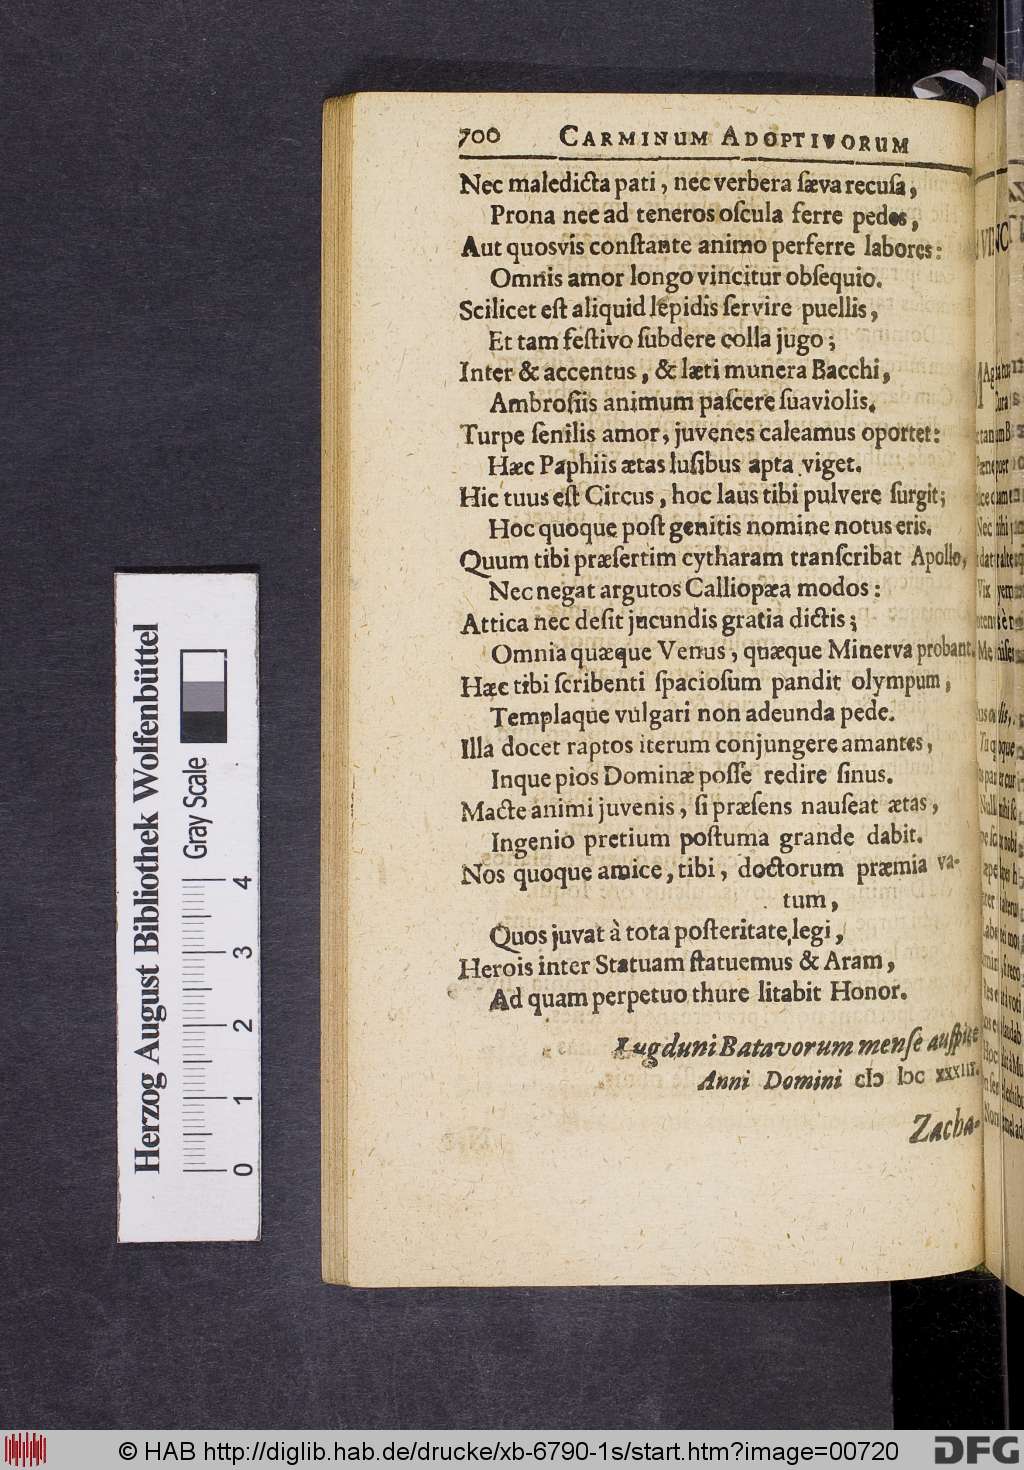 700 CARMINUM ADOPTIVORUM
Nec maledicta pati, nec verbera ſæva recuſa,
Prona nec ad teneros oſcula ferre pedes,
Aut quosvis conſtante animo perferre labores:
Omnis amor longo vincitur obſequio.
Scilicet eſt aliquid lepidis ſervire puellis,
Et tam feſtivo ſubdere colla jugo;
Inter & accentus, & læti munera Bacchi,
Ambroſiis animum paſcere ſuaviolis.
Turpe ſenilis amor, juvenes caleamus oportet:
Hæc Paphiis ætas luſibus apta viget.
Hic tuus eſt Circus, hoc laus tibi pulvere ſurgit;
Hoc quoque poſt genitis nomine notus eris.
Quum tibi præſertim cytharam tranſcribat Apollo,
Nec negat argutos Calliopæa modos:
Attica nec deſit jucundis gratia dictis;
Omnia quæque Venus, quæque Minerva probant.
Hæc tibi ſcribenti ſpacioſum pandit olympum,
Templaque vulgari non adeunda pede.
Illa docet raptos iterum conjungere amantes,
Inque pios Dominæ poſſe redire ſinus.
Macte animi juvenis, ſi præſens nauſeat ætas,
Ingenio pretium poſtuma grande dabit.
Nos quoque amice, tibi, doctorum præmia va-
tum,
Quos juvat à tota poſteritate legi,
Herois inter Statuam ſtatuemus & Aram,
Ad quam perpetuo thure litabit Honor.
Lugduni Batavorum menſe auſpice
Anni Domini cIↄ Iↄc xxxIII.
Zacha-
Herzog August Bibliothek Wolfenbüttel
Gray Scale
0 1 2 3 4
© HAB http://diglib.hab.de/drucke/xb-6790-1s/start.htm?image=00720
DFG